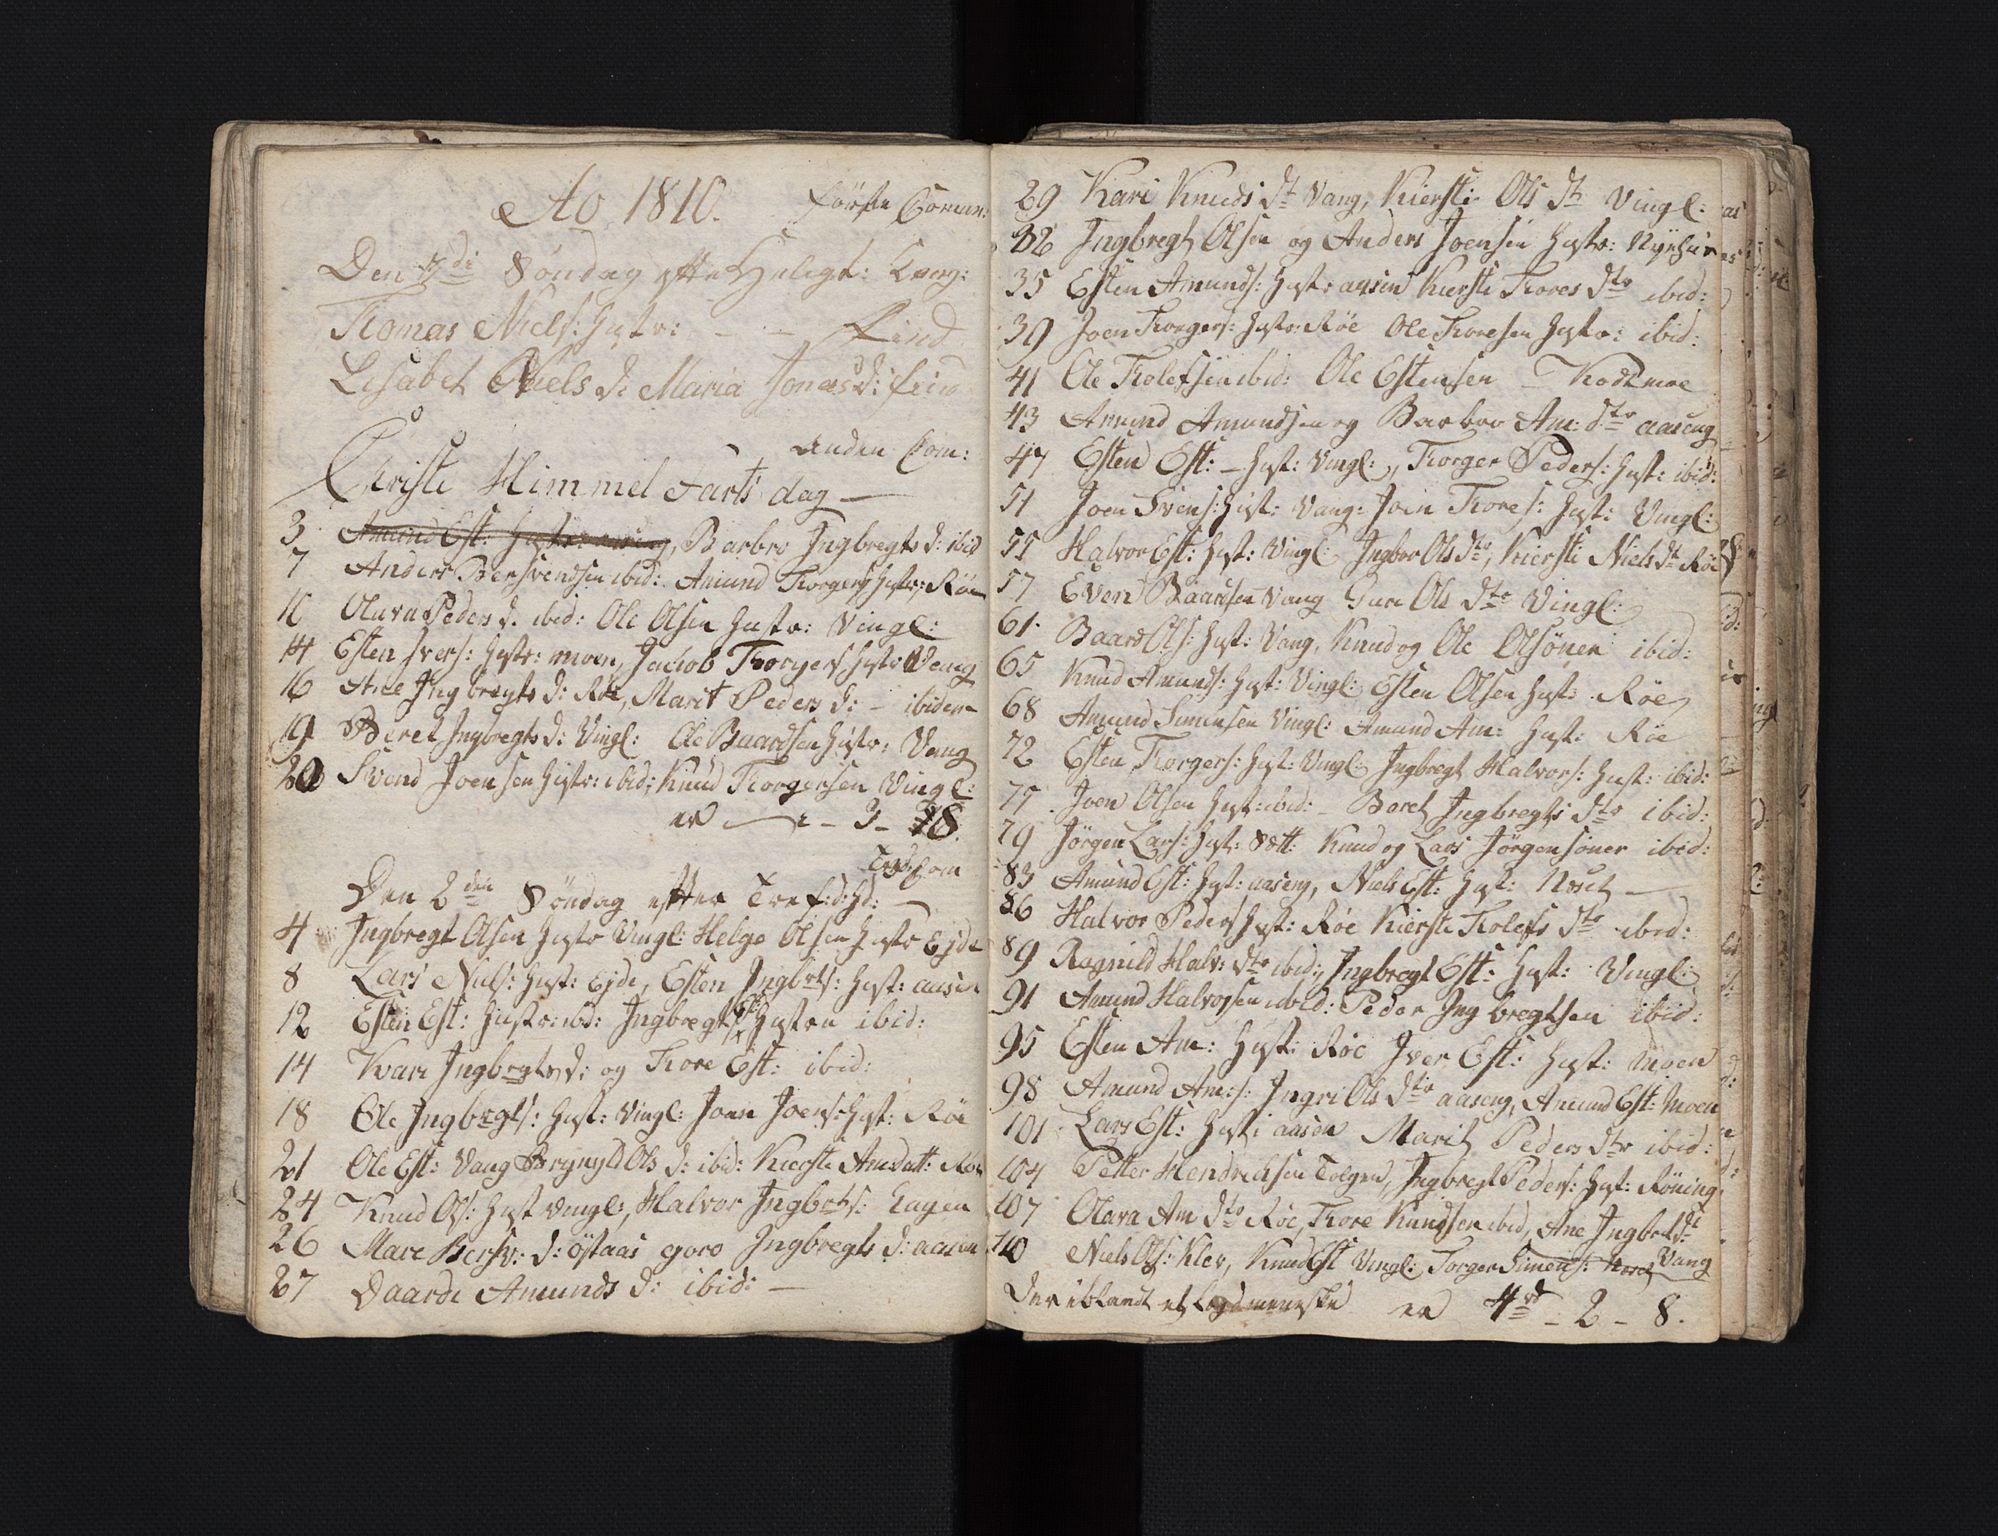 Ao 1810. Förste Comun:
Den 7di Söndag efter Heligt: Kong:
Tomas Niels: Hustr: - - Find
Lisabet Niels d: Maria Jonas d: find
anden Com:
Christi Himmel Farts dag
3 Amund Est: Hustr: aaseng, Barbro Ingbregts d: ibid
7 Anders Bersvendsen ibid: Amund Torgers Hustr: Röe
10 Olava Peders d. ibid: Ole Olsen Hustr: Vingl:
14 Esten Ivers: Hustr: moen, Jacob Torgers Hustr: Vang
16 Ane Ingbregts d: Röe, Marit Peders d: - ibidem
19 Beret Ingbregts d: Vingl: Ole Baardsen Hustr: Vang
20 Svend Joensen Hustr: ibid: Knud Torgersen Vingl:
er - 3 - 18
Com
Den 2den Söndag efter Tref: d: hd:
4 Ingbregt Olsen Hustr Vingl: Helge Olsen Hustr Ejde
8 Lars Niels: Hust: Ejde, Esten Ingbrts: Hust: aasen
12 Esten Est: Hustr: ibd: Ingbregt Est: Hustru ibid:
14 Kari Ingbregts d: og Tore Est: ibid:
18 Ole Ingbregts: Hust: Vingl: Joen Joens: Hust: Röe
21 Ole Est: Vang Brynyld Ols d: ibid: Kiersti Amdatt: Röe
24 Knud Ols: Hust Vingl:, Halvor Ingbrts: Eugen
26 Mari Bersv: d: östaas goro Ingbregts d: aasen
27 Daarde Amunds d: ibid:
29 Kari Knuds dt Vang, Kiersti Ols dtr Vingl:
32 Ingbregt Olsen og Anders Joensen Hustr: Nyehuus
35 Esten Amunds: Hust: aasen Kiersti Tores dtr ibid:
39 Joen Torgers: Hustr: Röe Ole Toresen Hustr: ibid:
41 Ole Tolefsen ibid: Ole Estensen - Kodtmoe
43 Amund Amundsen og Barbro Am: dtr aaseng
47 Esten Est: - Hust: Vingl:, Torger Peders: Hust: ibid:
51 Joen Svens: Hust: Vang: Join Tores: Hust: Vingl:
55 Halvor Est: Hust: Vingl: Ingbor Ols dtr, Kiersti Niels dt Röe
57 Even Baardsen Vang Guri Ols dtr Vingl:
61 Baard Ols: Hust: Vang, Knud og Ole Olsöner ibid:
65 Knud Amunds: Hust: Vingl: Esten Olsen Hust: Röe
68 Amund Simensen Vingl: Amund Am: Hust: Röe
72 Esten Torgers: Hust: Vingl: Ingbregt Halvors: Hust: ibid:
77 Joen Olsen Hust: ibid: - Beret Ingbregts dtr ibid:
79 Jörgen Lars: Hust: Sætt: Knud og Lars Jörgensöner ibid:
83 Amund Est: Hust: aaseng, Niels Est: Hust: Noset
86 Halvor Peders Hust: Röe Kiersti Tolefs dtr ibid:
89 Ragnild Halv: dtr ibid:, Ingbregt Est: Hust: Vingl:
91 Amund Halvorsen ibid: Peder Ingbregtsen ibid:
95 Esten Am: Hust: Röe Iver Est: Hust: Moen
98 Amund Am:s: Ingri Ols dtr aaseng, Amund Est: Moen
101 Lars Est: Hust: aasen Marit Peders dtr ibid:
104 Petter Hendrichsen Tolgen, Ingbregt Peders: Hust: Röning
107 Olava Am dtr Röe, Tore Knudsen ibid, Ane Ingbret dt
110 Niels Ols: Klev, Knud Est Vingl: Torger Simens: Nosch Vang
Der iblandt et Lægdmenneske er 4 rd - 2 - 8.